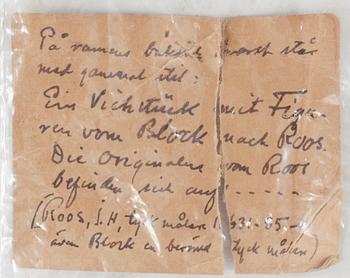 På ramens baksida svart står
med gammal stil:
Ein Viehstück mit Figu-
ren vom Block nach Roos.
Die Originalen vom Roos
befinden sich auf - - - - -
(Roos, J. H, tysk målare 1631-85.-
även Block en berömd tysk målare)